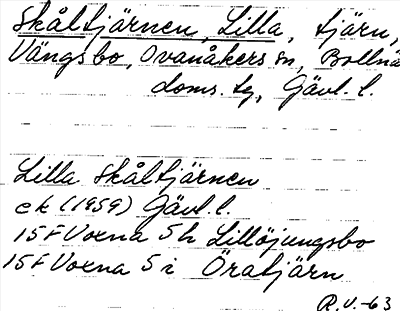 Skåltjärnen, Lilla, tjärn,
Vängsbo, Ovanåkers sn, Bollnä
doms. tg, Gävl. l.
Lilla Skåltjärnen
ek (1959) Gävl. l.
15F Voxna 5h Lillöjungsbo
15F Voxna 5i Öratjärn
R.V.-63